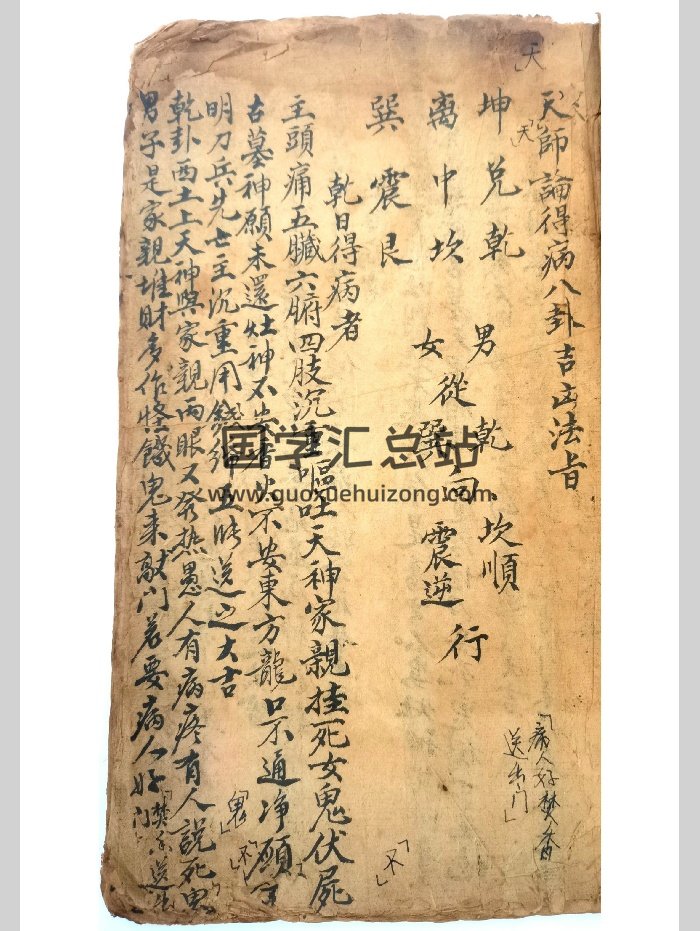 天師論得病八卦吉凶法旨
坤兌乾
离中坎
巽震艮
男乾坎順
女從巽向震逆
行
乾日得病者
主頭痛五臟六腑四肢沉重嘔吐天神家親挂死女鬼伏屍
古墓神願未還灶神不安東方龍口不通净願
明刀兵先亡主沉重用錢五送之大吉
乾卦西土上天神與家親両眼又發热愚人有病疼有人說死鬼
男子是家親堆財多作怪餓鬼来敲门若要病人好
焚香送出门
「病人好焚香
送出门」
「鬼」
「不」
「不」
「天」
「天」
国学汇总站
www.guoxuehuizong.com